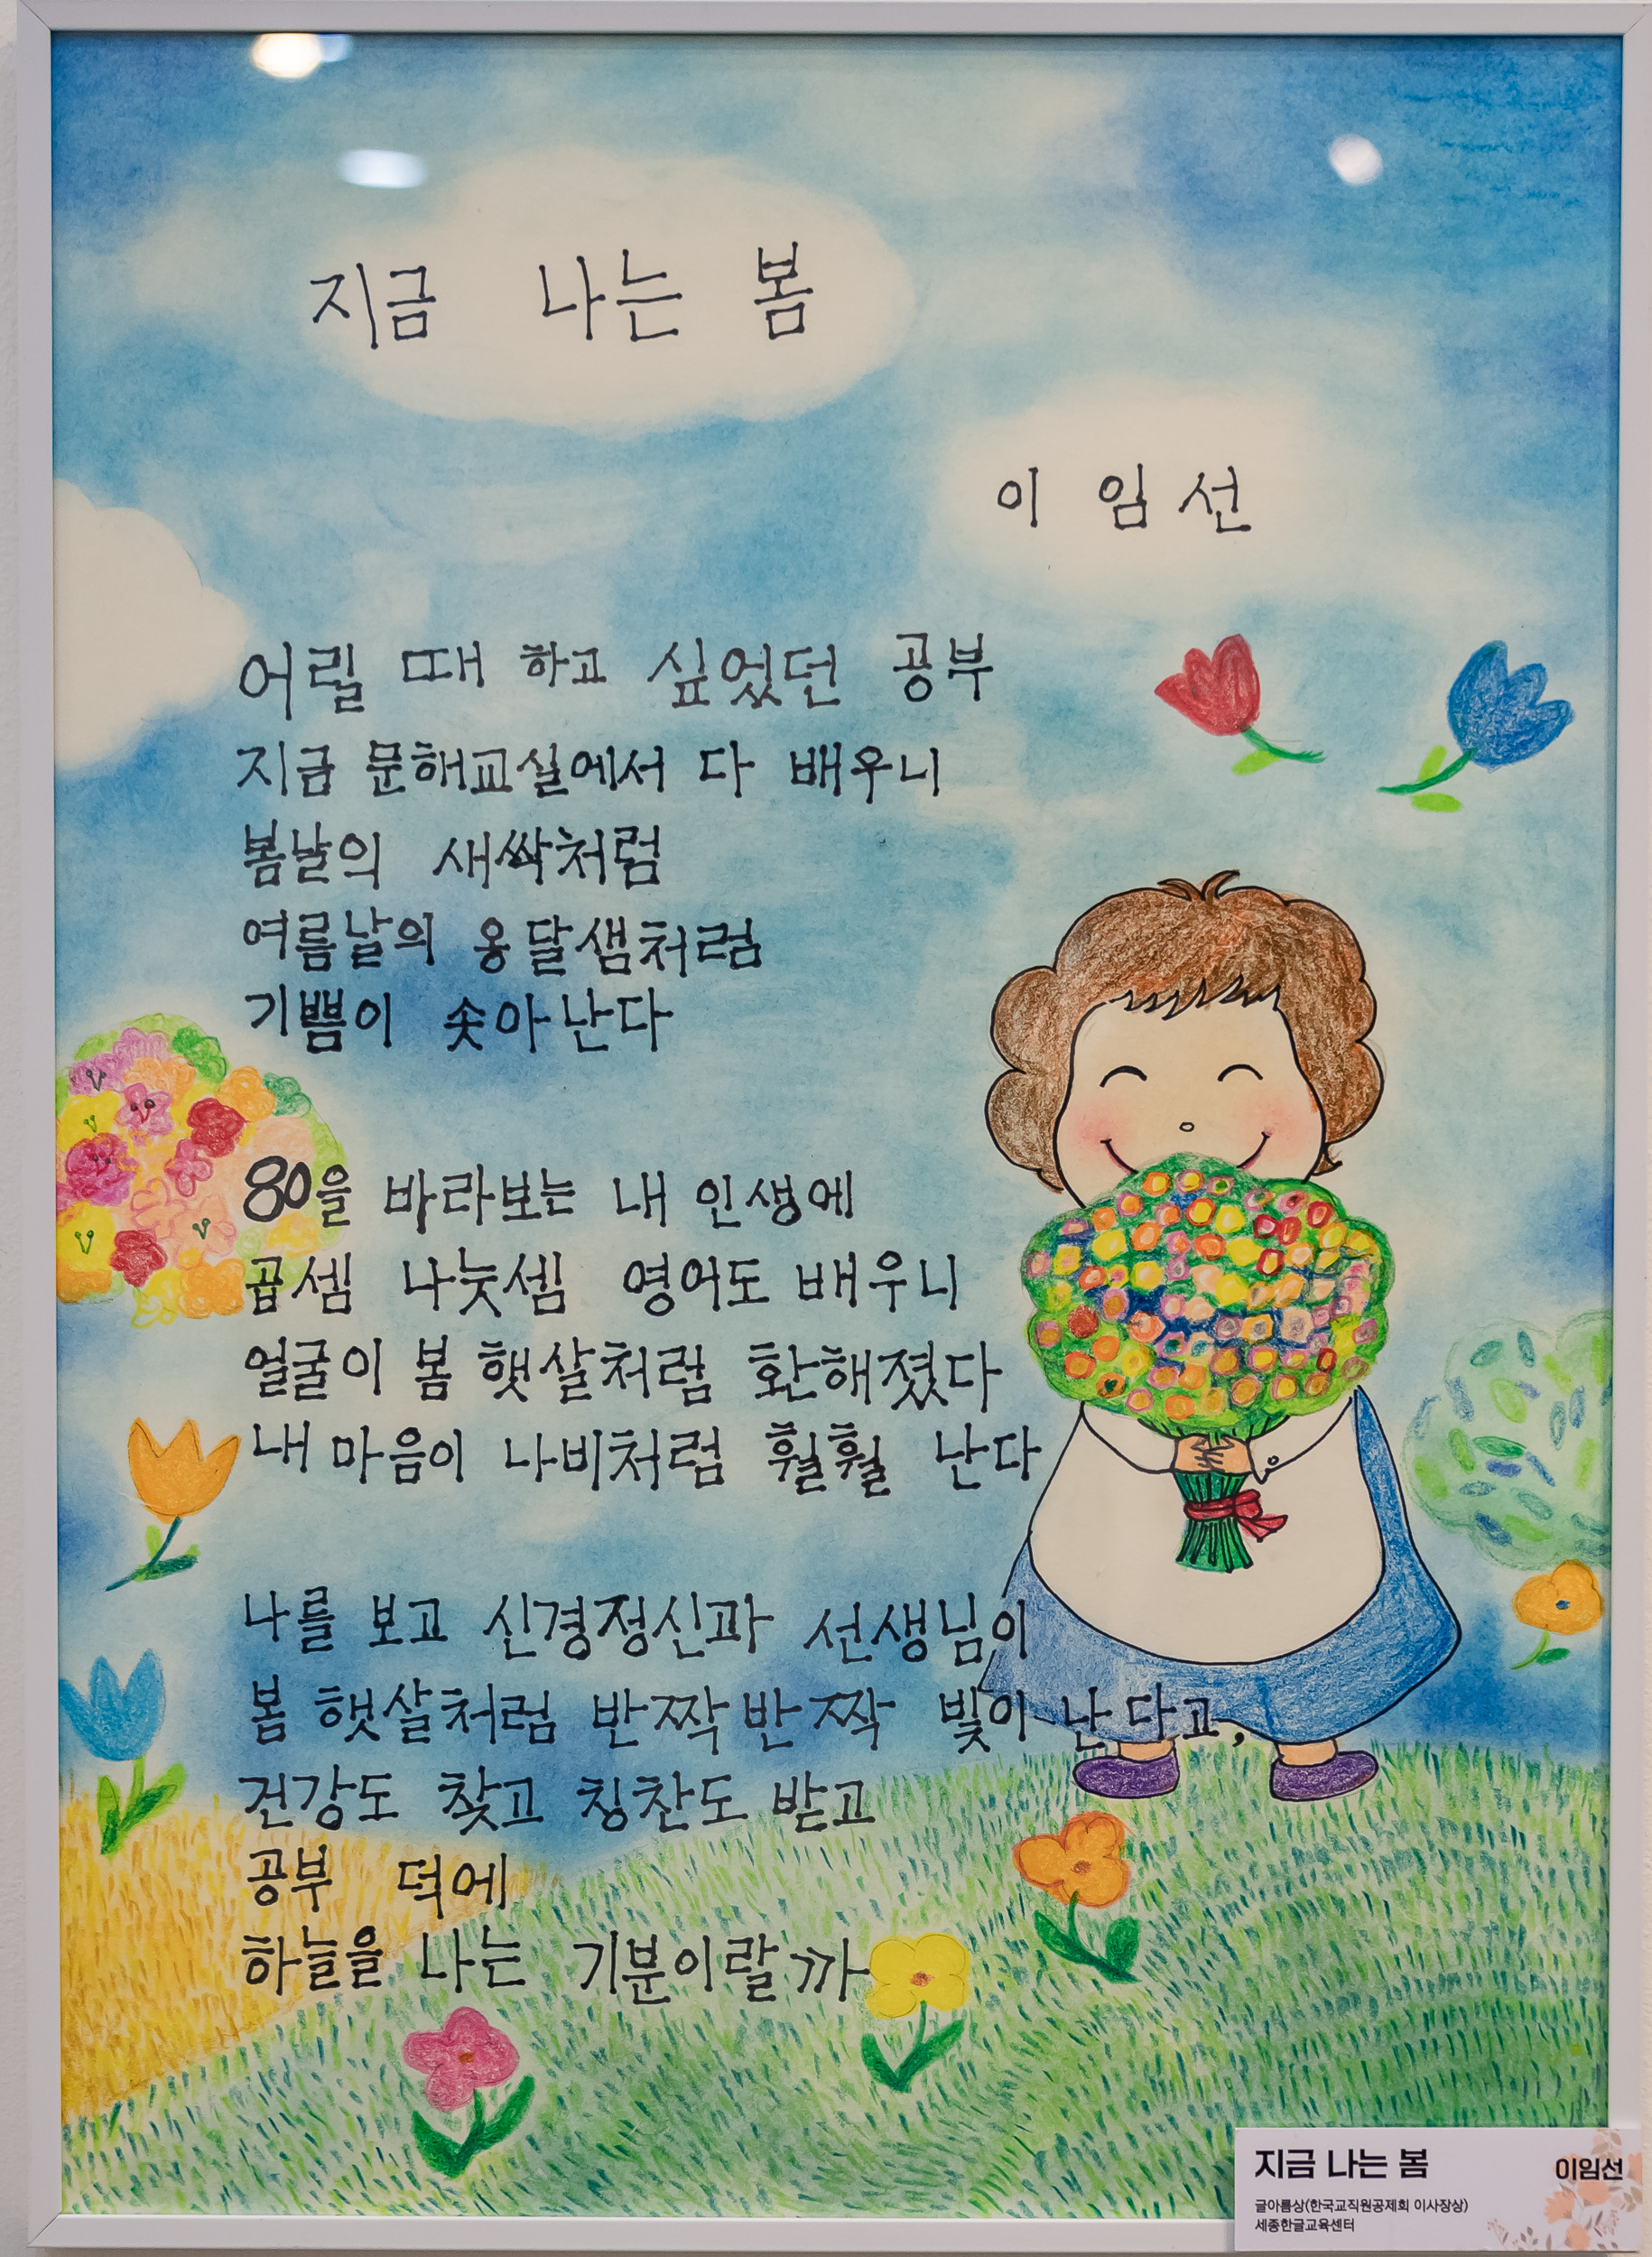 지금 나는 봄
이 임 선
어릴 때 하고 싶었던 공부
지금 문해교실에서 다 배우니
봄날의 새싹처럼
여름날의 옹달샘처럼
기쁨이 솟아난다
80을 바라보는 내 인생에
곱셈 나눗셈 영어도 배우니
얼굴이 봄 햇살처럼 환해졌다
내 마음이 나비처럼 훨훨 난다
나를 보고 신경정신과 선생님이
봄 햇살처럼 반짝반짝 빛이 난다고,
건강도 찾고 칭찬도 받고
공부 덕에
하늘을 나는 기분이랄까
지금 나는 봄
이임선
글아름상(한국교직원공제회 이사장상)
세종한글교육센터